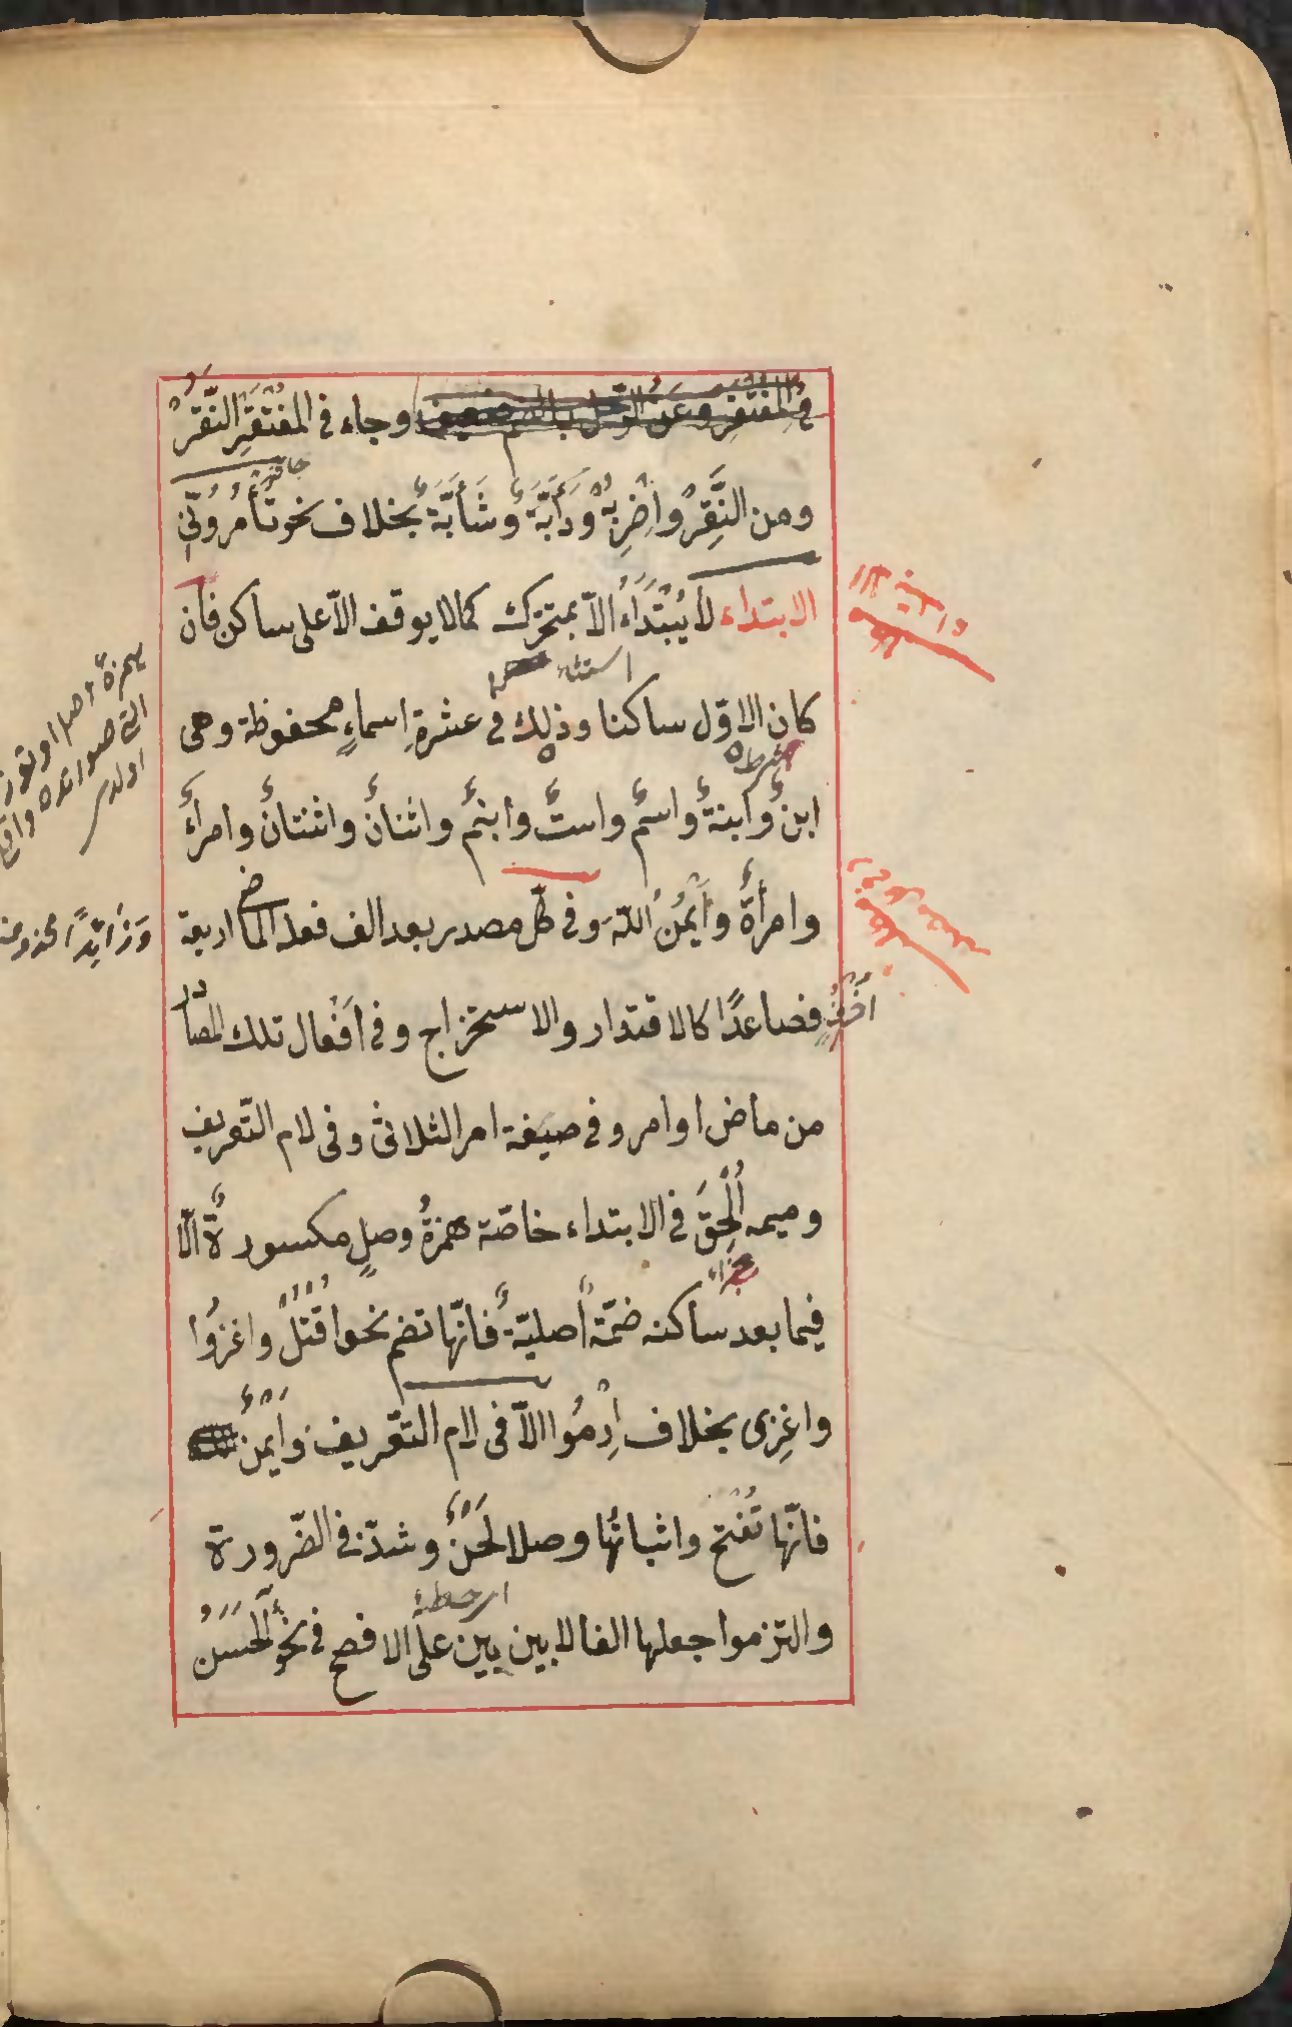 وجاء في المُفْتَقِرِ النَّقُرْ
ومن النَّقِرْ واِضْرِبُهْ ودَأَبَّة وشَأَبَّة بخلاف نحو تأمُرُونّي
الابتداء لا يُبْتَدَاءُ الاّ بمتحرّك كما لا يوقف الاّ على ساكن فان
كان الاوّل ساكنا وذلك في عشرةِ اسماءٍ محفوظة وهي
ابنٌ وابنةٌ واسمٌ واستٌ وابنمٌ واثنان واثنتان وامرأٌ
وامرأةٌ وأَيْمُنُ اللّه وفي كلّ مصدر بعد الف فعله الماضي اربعة
فصاعدًا كالاقتدار والاستخراج وفي اَفْعال تلك المصادر
من ماض او امر وفي صيغة امر الثلاثيّ وفي لام التّعريف
وميمه اُلْحِقَ في الابتداء خاصّة همزةُ وصلٍ مكسورةٌ الّا
فيما بعد ساكنه ضمّة أصليّة فانّها تضم نحو اُقْتُلْ واغزُوا
واغزِى بخلاف اِرْمُوا الاّ في لام التّعريف واَيْمُن
فانّها تُفْتح واثباتُها وصلا لَحْنٌ وشذّ في الضّرورة
والتزموا جعلها الفا لا بين بين على الافصح في نحو آلْحَسَنُ